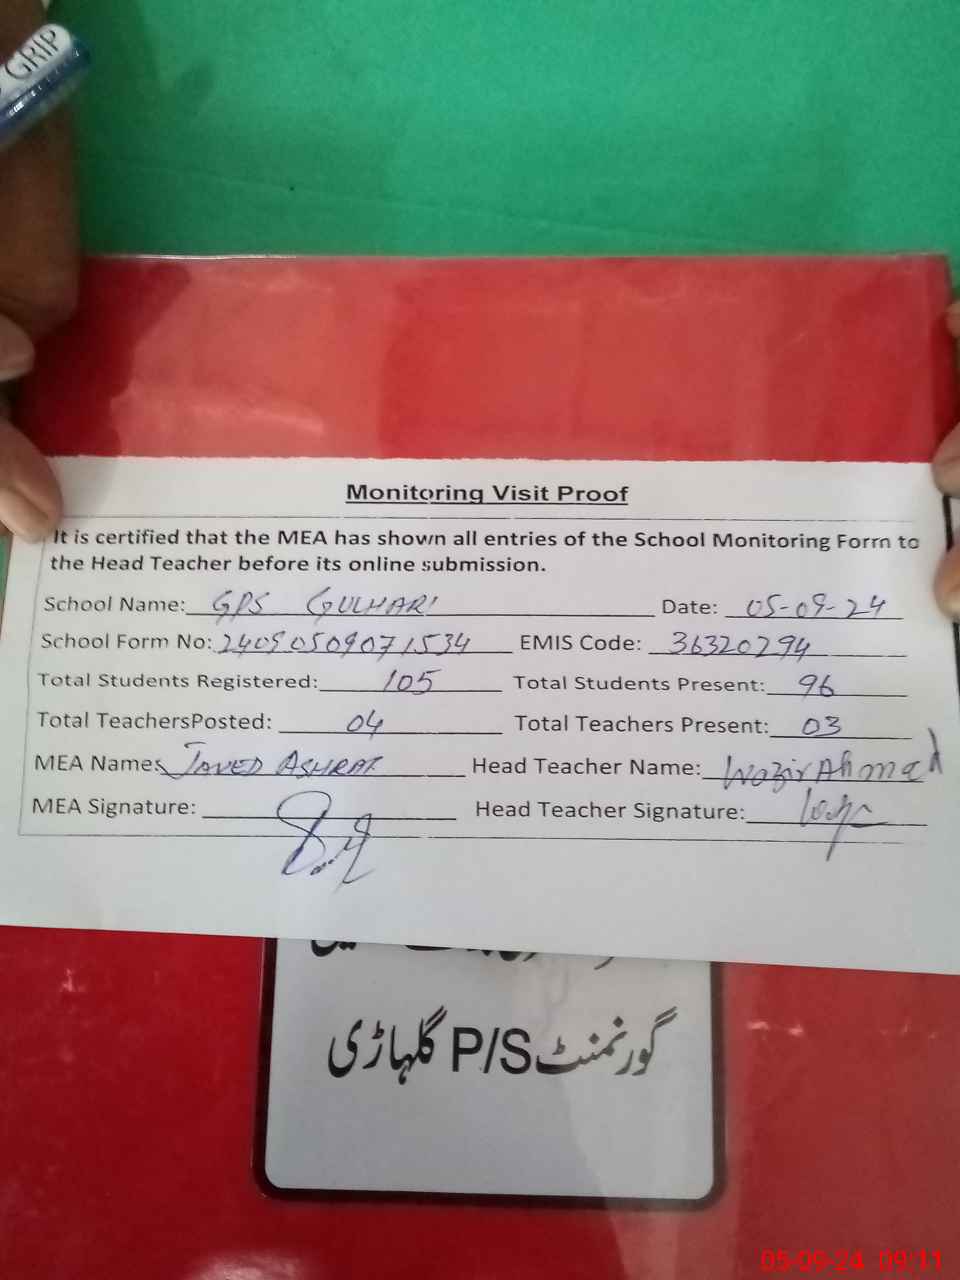 GRIP
Monitoring Visit Proof
It is certified that the MEA has shown all entries of the School Monitoring Form to
the Head Teacher before its online submission.
School Name: GPS GULHARI Date: 05-09-24
School Form No: 24090509071534 EMIS Code: 36320294
Total Students Registered: 105 Total Students Present: 96
Total TeachersPosted: 04 Total Teachers Present: 03
MEA Name: JAVED ASHRAF Head Teacher Name: Wazir Ahmad
MEA Signature: Head Teacher Signature:
گورنمنٹ P/S گلہاڑی
05-09-24 09:11